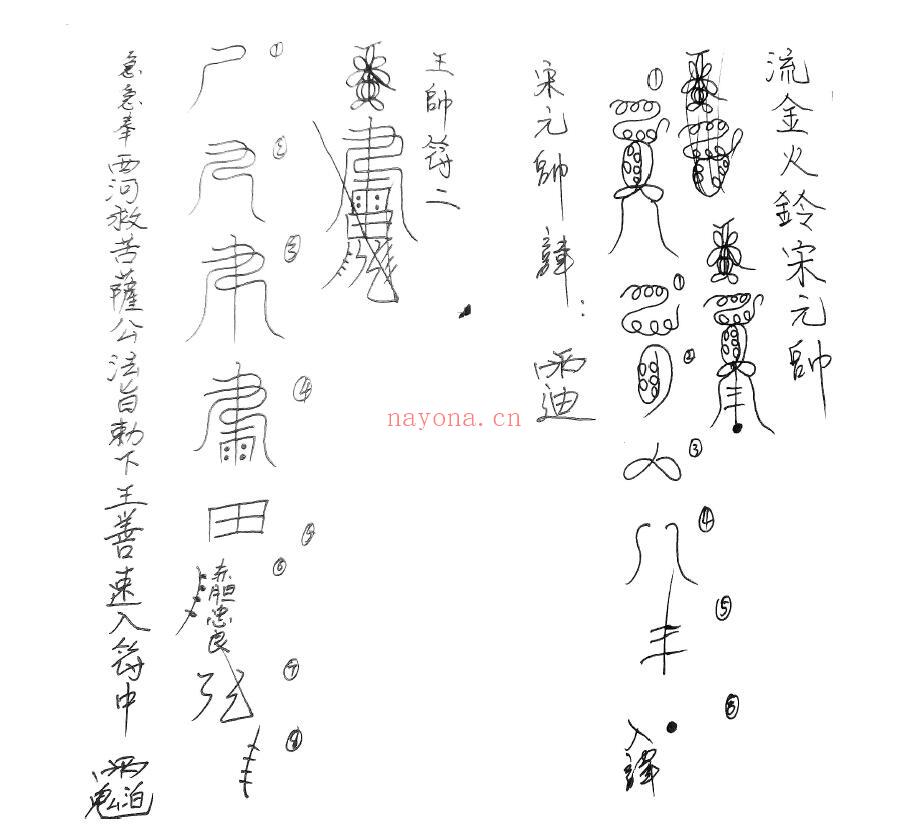 流金火鈴宋元帥
①
①
②
③
④
⑤
⑥
入諱
宋元帥諱：
王帥符二
①
②
③
④
田 ⑤
⑥
赤胆忠良
⑦
⑧
急急奉西河救苦薩公法旨勅下王善速入符中
nayona.cn